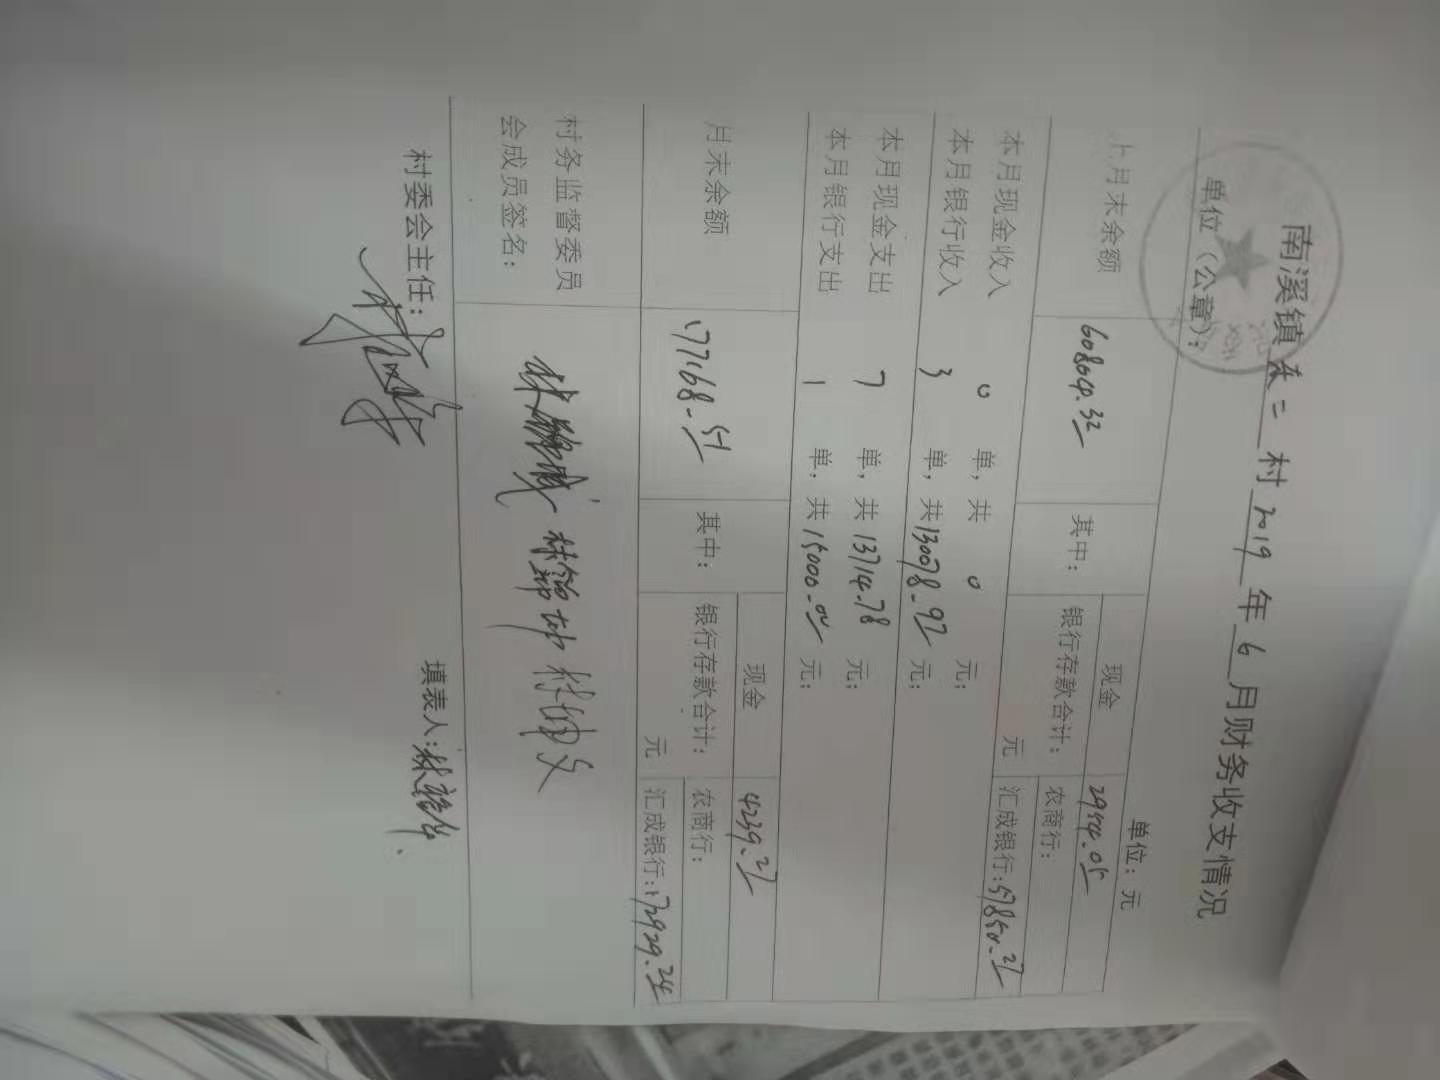 南溪镇 二 村 2019 年 6 月财务收支情况
单位（公章）： 单位：元
上月末余额 60804.32 其中： 现金 2954.05
银行存款合计： 元 农商行：
汇成银行：57850.27
本月现金收入 0 单，共 0 元；
本月银行收入 3 单，共130078.97 元；
本月现金支出 7 单，共13714.78 元；
本月银行支出 1 单，共15000.00 元；
月末余额 177168.51 其中： 现金 4239.27
银行存款合计： 元 农商行：
汇成银行：172929.24
村务监督委员
会成员签名：
村委会主任： 填表人：林